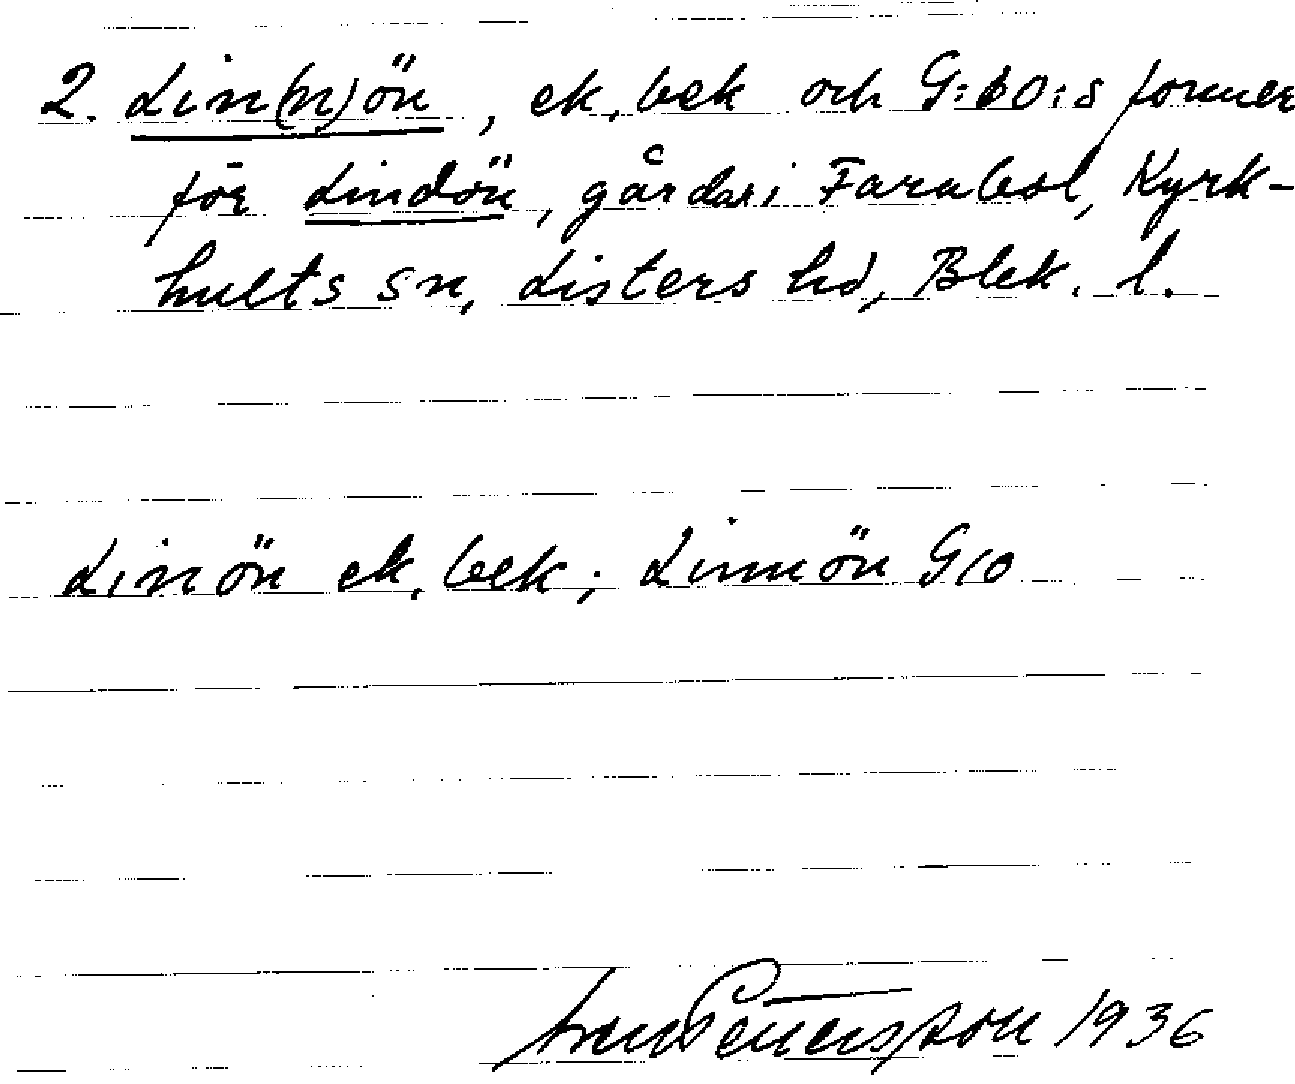 2. Lin(n)ön, ek, bek och G:bO:s former
för Lindön, gårdar i Farabol, Kyrk-
hults sn, Listers hd, Blek. l.
Linön ek, bek; Linnön G10
Pettersson 1936